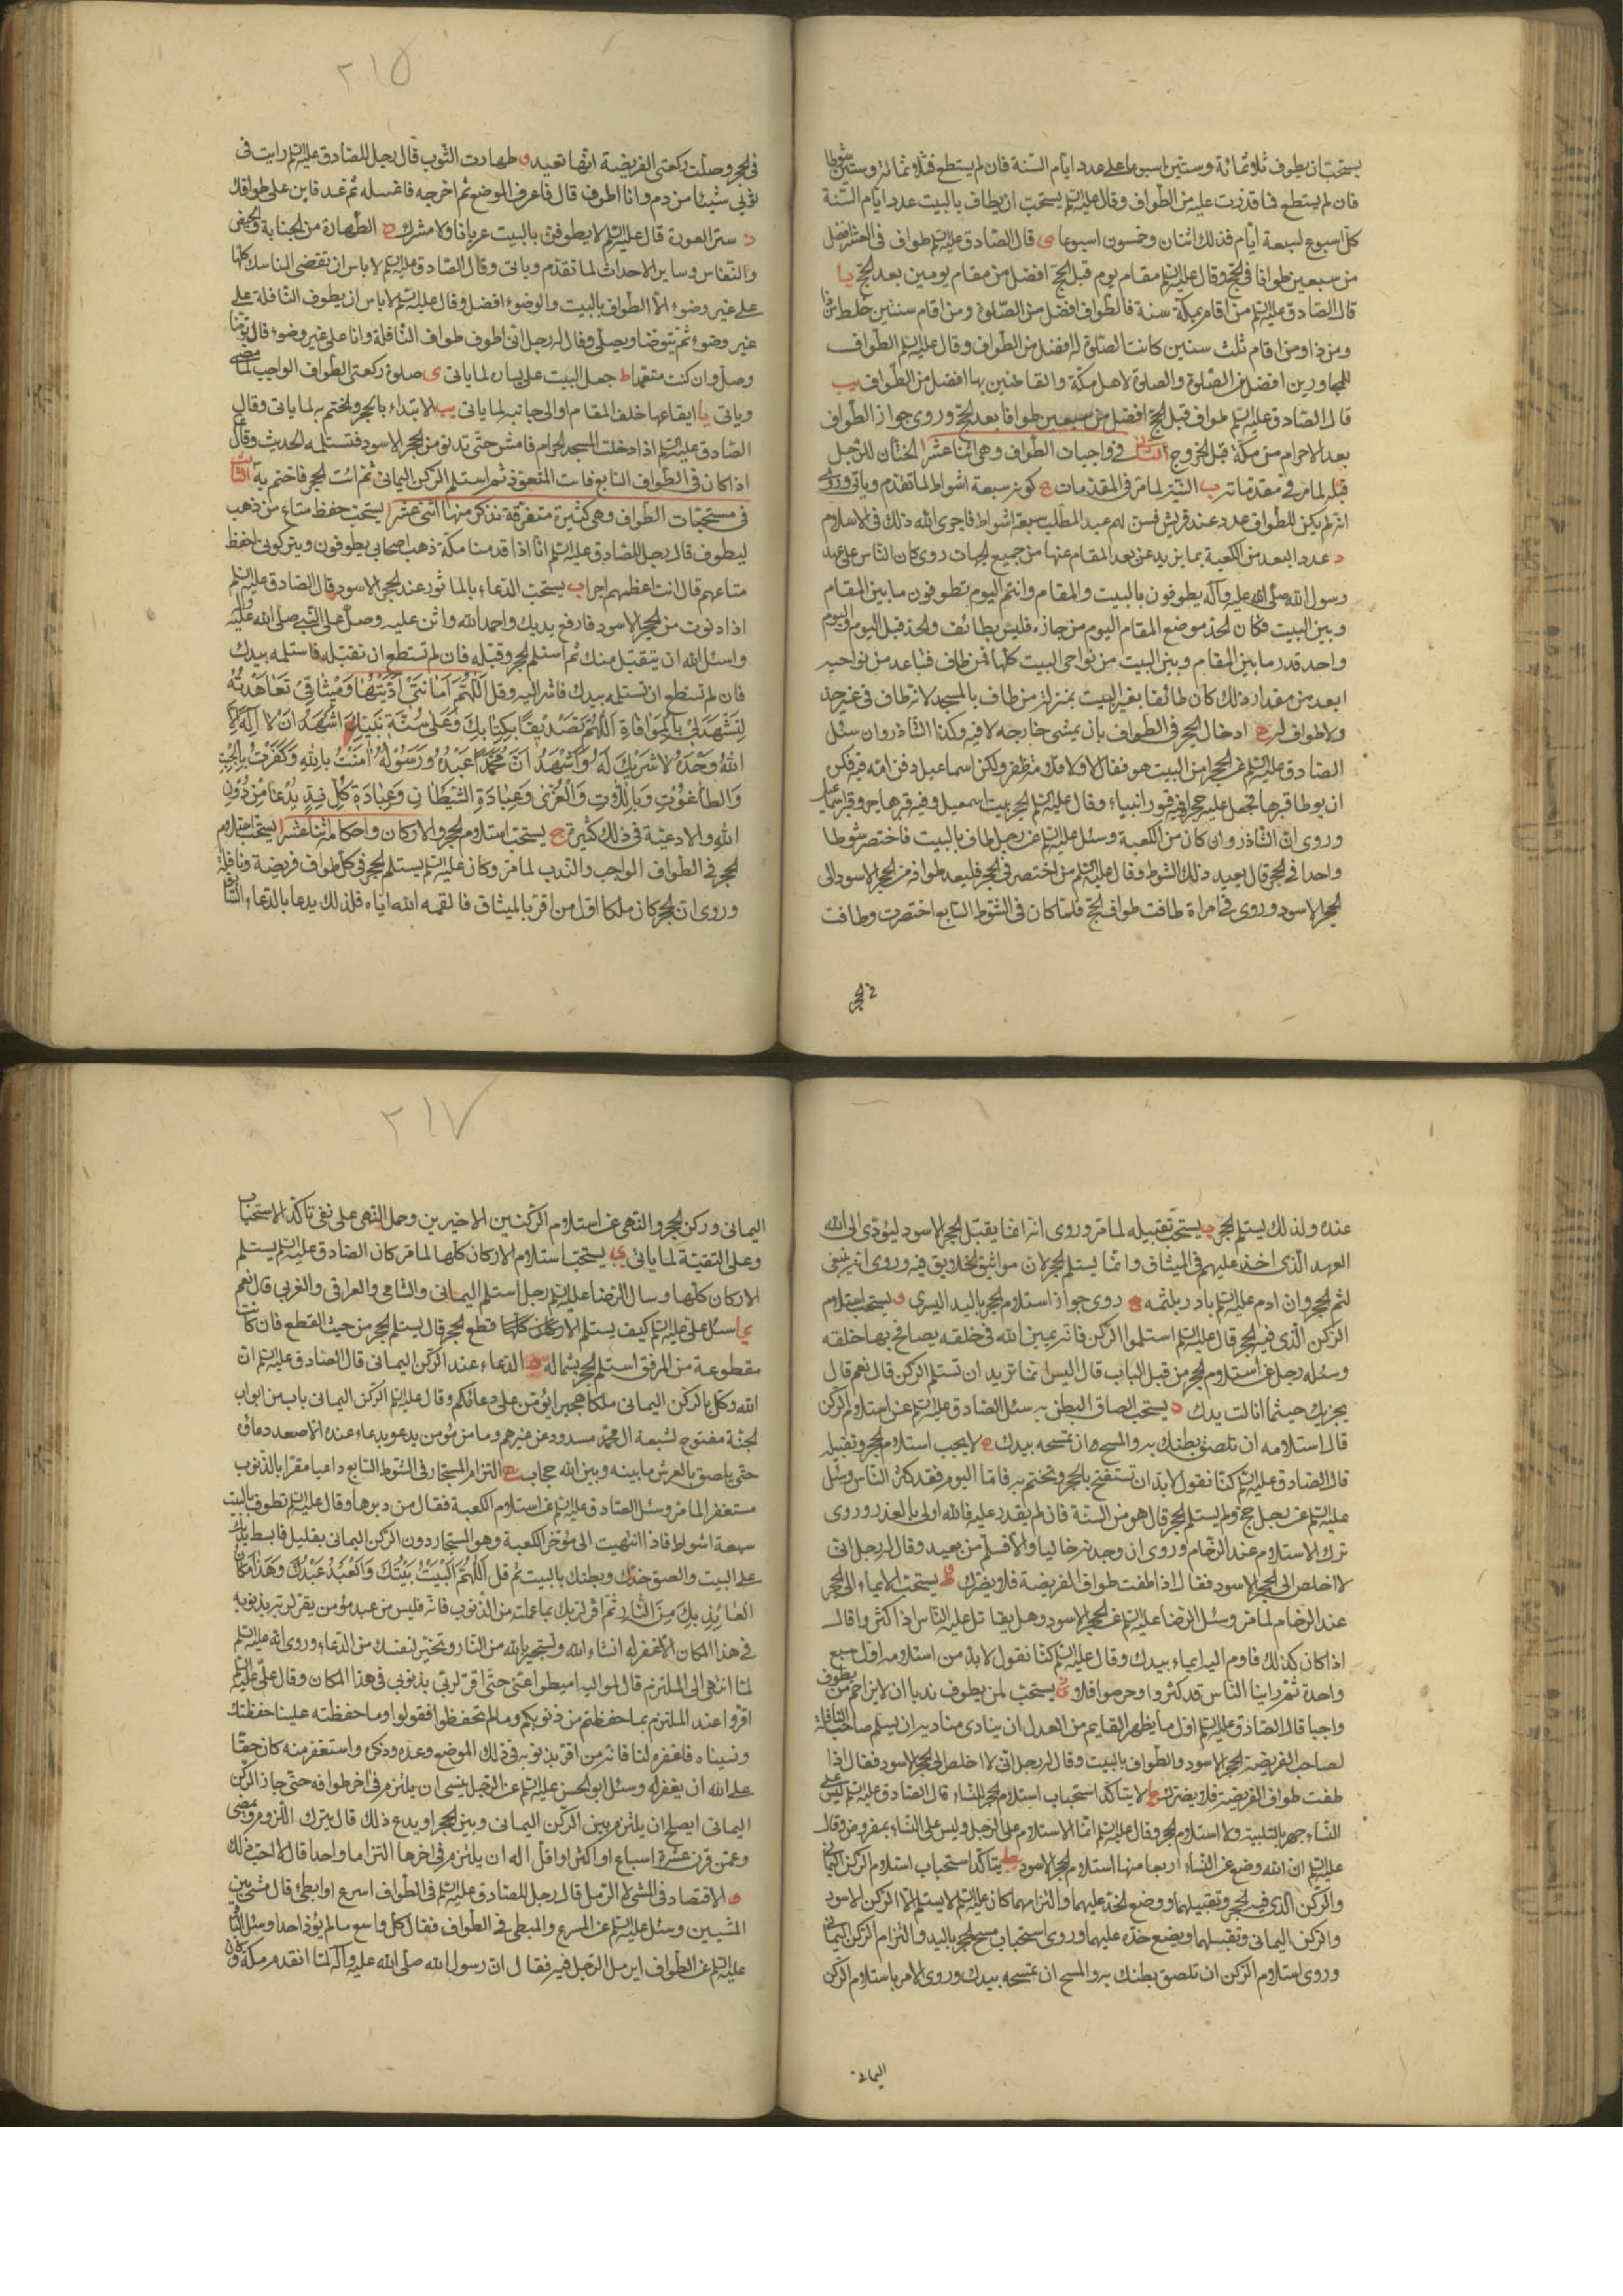 يستحب ان يطوف ثلاثمائة وستين اسبوعا على عدد ايام السنة فان لم يستطع فثلاثمائة وستين شوطا
فان لم يستطع فما قدرت عليه من الطواف وقال عليه السلم يستحب ان يطاف بالبيت عدد ايام السنة
كل اسبوع لسبعة ايام فذلك اثنان وخمسون اسبوعا ى قال الصادق عليه السلم طواف في العشر افضل
من سبعين طوافا في الحج وقال عليه السلم مقام يوم قبل الحج افضل من مقام يومين بعد الحج يا
قال الصادق عليه السلم من اقام بمكة سنة فالطواف افضل من الصلوة ومن اقام سنتين خلط من ذا
ومن ذا ومن اقام ثلث سنين كانت الصلوة له افضل من الطواف وقال عليه السلم الطواف
للمجاورين افضل من الصلوة والصلوة لاهل مكة والقاطنين بها افضل من الطواف يب
قال الصادق عليه السلم طواف قبل الحج افضل من سبعين طوافا بعد الحج وروى جواز الطواف
بعد الاحرام من مكة قبل الخروج الثاني في واجبات الطواف وهى اثنا عشر ا الختان للرجل
قبله لما مر في مقدماته ب النية لما مر في المقدمات ج كونه سبعة اشواط لما تقدم وياتي وروى
انه لم يكن للطواف عدد عند قريش فسن لهم عبد المطلب سبعة اشواط فاجرى الله ذلك في الاسلام
د عدد البعد من الكعبة بما يزيد عن بعد المقام عنها من جميع الجهات روى كان الناس على عهد
رسول الله صلى الله عليه وآله يطوفون بالبيت والمقام وانتم اليوم تطوفون ما بين المقام
وبين البيت فكان الحد موضع المقام اليوم من جازه فليس بطائف والحد قبل اليوم واليوم
واحد قدر ما بين المقام وبين البيت من نواحى البيت كلها فمن طاف فتباعد من نواحيه
ابعد من مقدار ذلك كان طائفا بغير البيت بمنزلة من طاف بالمسجد لانه طاف في غير حد
ولا طواف له ه ادخال الحجر في الطواف بان يمشى خارجه لا فيه وكذا الشاذروان سئل
الصادق عليه السلم عن الحجر امن البيت هو فقال لا ولا قلامة ظفر ولكن اسماعيل دفن امه فيه فكره
ان يوطا قبرها فجعل عليه حجرا وفيه قبور انبياء وقال عليه السلم الحجر بيت اسمعيل وفيه قبر هاجر وقبر اسماعيل
وروى ان الشاذروان كان من الكعبة وسئل عليه السلم عن رجل طاف بالبيت فاختصر شوطا
واحدا في الحجر قال يعيد ذلك الشوط وقال عليه السلم من اختصر في الحجر فليعد طوافه من الحجر الاسود الى
الحجر الاسود وروى في امراة طافت طواف الحج فلما كان في الشوط السابع اختصرت وطافت
في الحجر
٢١٥
في الحجر وصلت ركعتى الفريضة انها تعيد و طهارت الثوب قال رجل للصادق عليه السلم رايت في
ثوبي شيئا من دم وانا اطوف قال فاعرف الموضع ثم اخرجه فاغسله ثم عد فابن على طوافك
ز ستر العورة قال عليه السلم لا يطوفن بالبيت عريان ولا مشرك ح الطهارة من الجنابة والحيض
والنفاس وساير الاحداث لما تقدم وياتى وقال الصادق عليه السلم لا باس ان تقضى المناسك كلها
على غير وضوء الا الطواف بالبيت والوضوء افضل وقال عليه السلم لا باس ان يطوف النافلة على
غير وضوء ثم يتوضا ويصلى وقال له رجل انى اطوف طواف النافلة وانا على غير وضوء قال توضا
وصل وان كنت متعمدا ط جعل البيت على يساره لما ياتى ى صلوة ركعتى الطواف الواجب لما مضى
وياتى يا ايقاعها خلف المقام او الى جانبه لما ياتى يب الابتداء بالحجر والختم به لما ياتى وقال
الصادق عليه السلم اذا دخلت المسجد الحرام فامش حتى تدنو من الحجر الاسود فتستلمه الحديث وقال
اذا كان في الطواف السابع فات المتعوذ ثم استلم الركن اليمانى ثم ائت الحجر فاختم به الثالث
في مستحبات الطواف وهى كثيرة متفرقة نذكر منها اثنى عشر ا يستحب حفظ متاع من ذهب
ليطوف قال رجل للصادق عليه السلم انا اذا قدمنا مكة ذهب اصحابى يطوفون ويتركونى احفظ
متاعهم قال انت اعظمهم اجرا ب يستحب الدعاء بالماثور عند الحجر الاسود قال الصادق عليه السلم
اذا دنوت من الحجر الاسود فارفع يديك واحمد الله واثن عليه وصل على النبى صلى الله عليه وآله
واسئل الله ان يتقبل منك ثم استلم الحجر وقبله فان لم تستطع ان تقبله فاستلمه بيدك
فان لم تستطع ان تستلمه بيدك فاشر اليه وقل اَللّٰهُمَّ اَمَانَتِى اَدَّيْتُهَا وَمِيْثَاقِى تَعَاهَدْتُهُ
لِتَشْهَدَ لِى بِالْمُوَافَاةِ اَللّٰهُمَّ تَصْدِيْقًا بِكِتَابِكَ وَعَلَى سُنَّةِ نَبِيِّكَ اَشْهَدُ اَنْ لَا اِلٰهَ اِلَّا
اللّٰهُ وَحْدَهُ لَا شَرِيْكَ لَهُ وَاَشْهَدُ اَنَّ مُحَمَّدًا عَبْدُهُ وَرَسُوْلُهُ اٰمَنْتُ بِاللّٰهِ وَكَفَرْتُ بِالْجِبْتِ
وَالطَّاغُوْتِ وَبِاللَّاتِ وَالْعُزّٰى وَعِبَادَةِ الشَّيْطَانِ وَعِبَادَةِ كُلِّ نِدٍّ يُدْعَا مِنْ دُوْنِ
اللّٰهِ والادعية في ذلك كثيرة ج يستحب استلام الحجر والاركان واحكامه اثنا عشر ا يستحب استلام
الحجر في الطواف الواجب والندب لما مر وكان عليه السلم يستلم الحجر في كل طواف فريضة ونافلة
وروى ان الحجر كان ملكا اول من اقر بالميثاق فالقمه الله اياه فلذلك يدعا بالدعاء
عنده ولذلك يستلم الحجر ب يستحب تقبيله لما مر وروى انه انما يقبل الحجر الاسود ليؤدى الى الله
العهد الذى اخذ عليهم في الميثاق وانما يستلم الحجر لان مواثيق الخلايق فيه وروى انه ينبغى
لثم الحجر وان ادم عليه السلم بادر بلثمه ج روى جواز استلام الحجر باليد اليسرى و يستحب استلام
الركن الذى فيه الحجر قال عليه السلم استلموا الركن فانه يمين الله في خلقه يصافح بها خلقه
وسئله رجل عن استلام الحجر من قبل الباب قال اليس انما تريد ان تستلم الركن قال نعم قال
يجزيك حيثما نالت يدك ه يستحب الصاق البطن به سئل الصادق عليه السلم عن استلام الركن
قال استلامه ان تلصق بطنك به والمسح ان تمسحه بيدك لا يجب استلام الحجر وتقبيله
قال الصادق عليه السلم كنا نقول لا بد ان تستفتح بالحجر وتختم به فاما اليوم فقد كثر الناس وسئل
عليه السلم عن رجل حج ولم يستلم الحجر قال هو من السنة فان لم يقدر عليه فالله اولى بالعذر وروى
ترك الاستلام عند الزحام وروى ان وجدته خاليا والا فسلم من بعيد وقال له رجل انى
لا اخلص الى الحجر الاسود فقال اذا طفت طواف الفريضة فلا يضرك ط يستحب الايماء الى الحجر
عند الزحام لما مر وسئل الرضا عليه السلم عن الحجر الاسود وهل يقاتل عليه الناس اذا كثروا قال
اذا كان كذلك فاوم اليه ايماء بيدك وقال عليه السلم كنا نقول لا بد من استلامه اول سبع
واحدة ثم راينا الناس قد كثروا وحرصوا فلا ى يستحب لمن يطوف ندبا ان لا يزاحم من يطوف
واجبا قال الصادق عليه السلم اول ما يظهر القايم من العدل ان ينادى مناديه ان يسلم صاحب النافلة
لصاحب الفريضة الحجر الاسود والطواف بالبيت وقال له رجل انى لا اخلص الى الحجر الاسود فقال اذا
طفت طواف الفريضة فلا يضرك يا لا يتاكد استحباب استلام الحجر للنساء قال الصادق عليه السلم ليس على
النساء جهر بالتلبية ولا استلام الحجر وقال عليه السلم انما الاستلام على الرجل وليس على النساء بمفروض وقال
عليه السلم ان الله وضع عن النساء اربعا منها استلام الحجر الاسود يتاكد استحباب استلام الركن اليمانى
والركن الذى فيه الحجر وتقبيلهما ووضع الخد عليهما والتزامهما كان عليه السلم لا يستلم الا الركن الاسود
والركن اليمانى وتقبلهما ويضع خده عليهما وروى استحباب مسح الحجر باليد والتزام الركن اليمانى
وروى استلام الركن ان تلصق بطنك به والمسح ان تمسحه بيدك وروى الامر باستلام الركن
اليمانى
٢١٧
اليمانى وركن الحجر والنهى عن استلام الركنين الاخيرين وحمل النهى على نفى تاكد الاستحباب
وعلى التقية لما ياتى ى يستحب استلام الاركان كلها لما مر كان الصادق عليه السلم يستلم
الاركان كلها وسال الرضا عليه السلم رجل استلم اليمانى والشامى والعراقى والغربى قال نعم
يا سئل على عليه السلم كيف يستلم الاركان كلها قطع الحجر قال يستلم الحجر من حيث القطع فان كانت
مقطوعة من المرفق استلم الحجر بشماله الدعاء عند الركن اليمانى قال الصادق عليه السلم ان
الله وكل بالركن اليمانى ملكا هجيرا يؤمن على دعائكم وقال عليه السلم الركن اليمانى باب من ابواب
الجنة مفتوح لشيعة ال محمد مسدود عن غيرهم وما من مؤمن يدعو بدعاء عنده الا صعد دعاؤه
حتى يلصق بالعرش ما بينه وبين الله حجاب التزام المستجار في الشوط السابع داعيا مقرا بالذنوب
مستغفرا لما مر وسئل الصادق عليه السلم عن استلام الكعبة فقال من دبرها وقال عليه السلم تطوف بالبيت
سبعة اشواط فاذا انتهيت الى مؤخر الكعبة وهو المستجار دون الركن اليمانى بقليل فابسط يديك
على البيت والصق خدك وبطنك بالبيت ثم قل اَللّٰهُمَّ الْبَيْتُ بَيْتُكَ وَالْعَبْدُ عَبْدُكَ وَهَذَا مَكَانُ
الْعَائِذِ بِكَ مِنَ النَّارِ ثم اقر لربك بما عملت من الذنوب فانه فليس من عبد مؤمن يقر لربه بذنوبه
في هذا المكان الا غفر له انشاء الله وتستجير بالله من النار وتخير لنفسك من الدعاء وروى انه عليه السلم
لما انتهى الى الملتزم قال لمواليه اميطوا عنى حتى اقر لربى بذنوبى في هذا المكان وقال على عليه السلم
اقروا عند الملتزم بما حفظتم من ذنوبكم وما لم تحفظوا فقولوا وما حفظته علينا حفظتك
ونسيناه فاغفره لنا فانه من اقر بذنوبه في ذلك الموضع وعده وذكره واستغفر منه كان حقا
على الله ان يغفر له وسئل ابو الحسن عليه السلم عن الرجل ينسى ان يلتزم في اخر طوافه حتى جاز الركن
اليمانى ايصلح ان يلتزم بين الركن اليمانى وبين الحجر او يدع ذلك قال يترك اللزوم ويمضى
وعمن قرن عشرة اسباع او اكثر او اقل اله ان يلتزم في اخرها التزاما واحدا قال لا احب ذلك
الاقتصاد في المشى لا الرمل قال رجل للصادق عليه السلم في الطواف اسرع او ابطئ قال مشى بين
المشيين وسئل عليه السلم عن المسرع والمبطى في الطواف فقال كل واسع ما لم يؤذ احدا وسئل
عليه السلم عن الطواف ايرمل الرجل فيه فقال ان رسول الله صلى الله عليه وآله لما ان قدم مكة